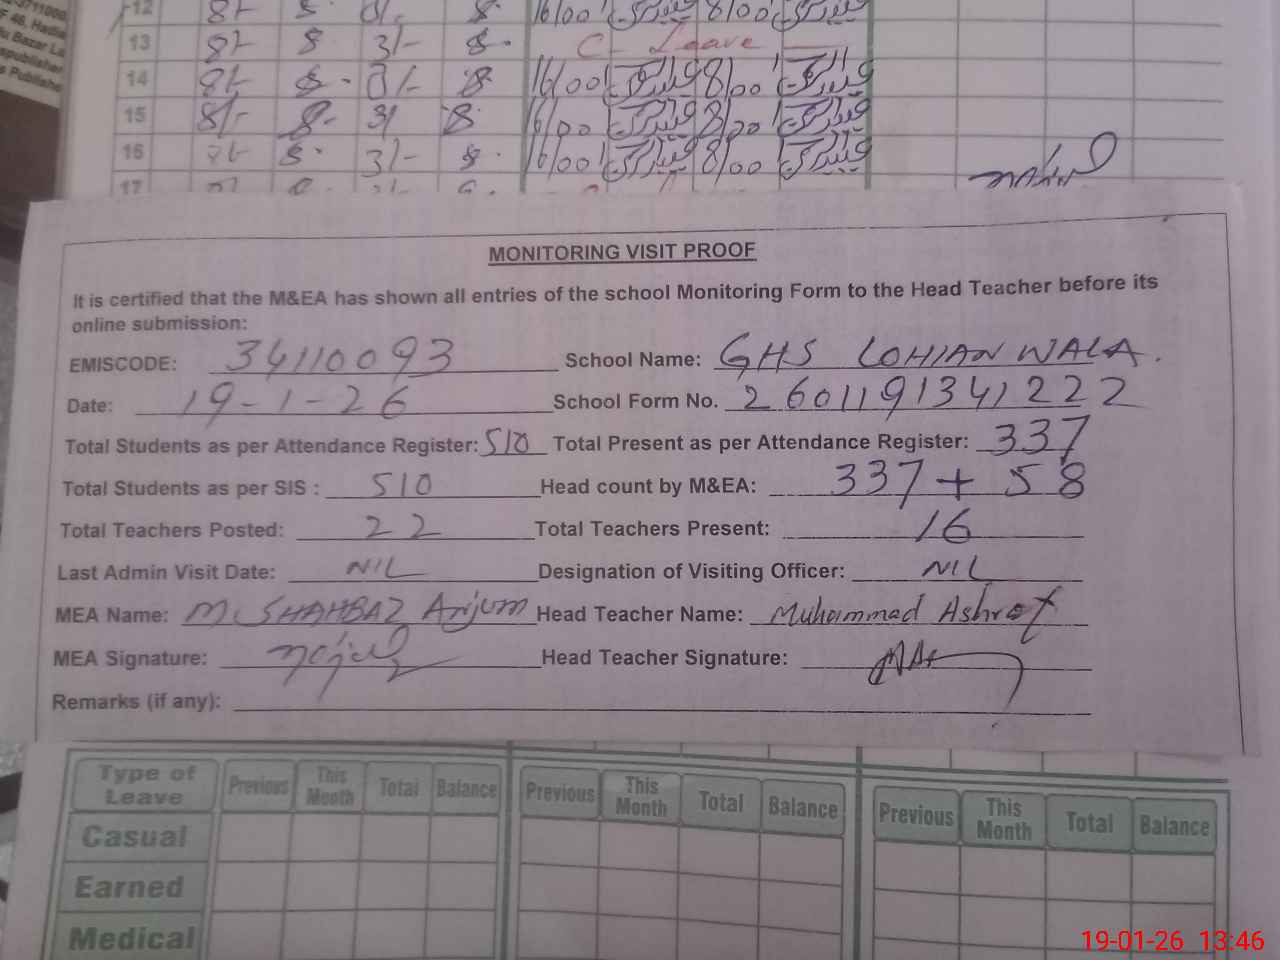 12 8/- 8 3/- 8 16/00 8/00
13 8/- 8 3/- 8 C- Leave
14 8/- 8 3/- 8 16/00 8/00
15 8/- 8 3/ 8 16/00 8/00
16 8/- 8 3/- 8 16/00 8/00
17
MONITORING VISIT PROOF
It is certified that the M&EA has shown all entries of the school Monitoring Form to the Head Teacher before its
online submission:
EMISCODE: 34110093 School Name: GHS LOHIAN WALA.
Date: 19-1-26 School Form No. 2601191341222
Total Students as per Attendance Register: 510 Total Present as per Attendance Register: 337
Total Students as per SIS : 510 Head count by M&EA: 337 + 58
Total Teachers Posted: 22 Total Teachers Present: 16
Last Admin Visit Date: NIL Designation of Visiting Officer: NIL
MEA Name: M. SHAHBAZ Anjum Head Teacher Name: Muhammad Ashraf
MEA Signature: Head Teacher Signature:
Remarks (if any):
Type of Leave Previous This Month Total Balance Previous This Month Total Balance Previous This Month Total Balance
Casual
Earned
Medical
19-01-26 13:46